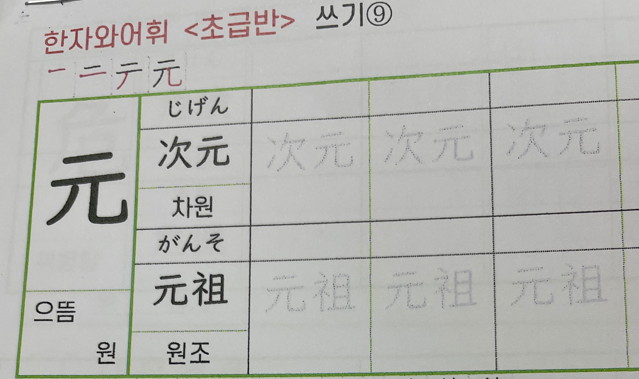 한자와어휘 <초급반> 쓰기⑨
一 二 テ 元
元
으뜸
원
じげん
次元 次元 次元 次元
차원
がんそ
元祖 元祖 元祖 元祖
원조